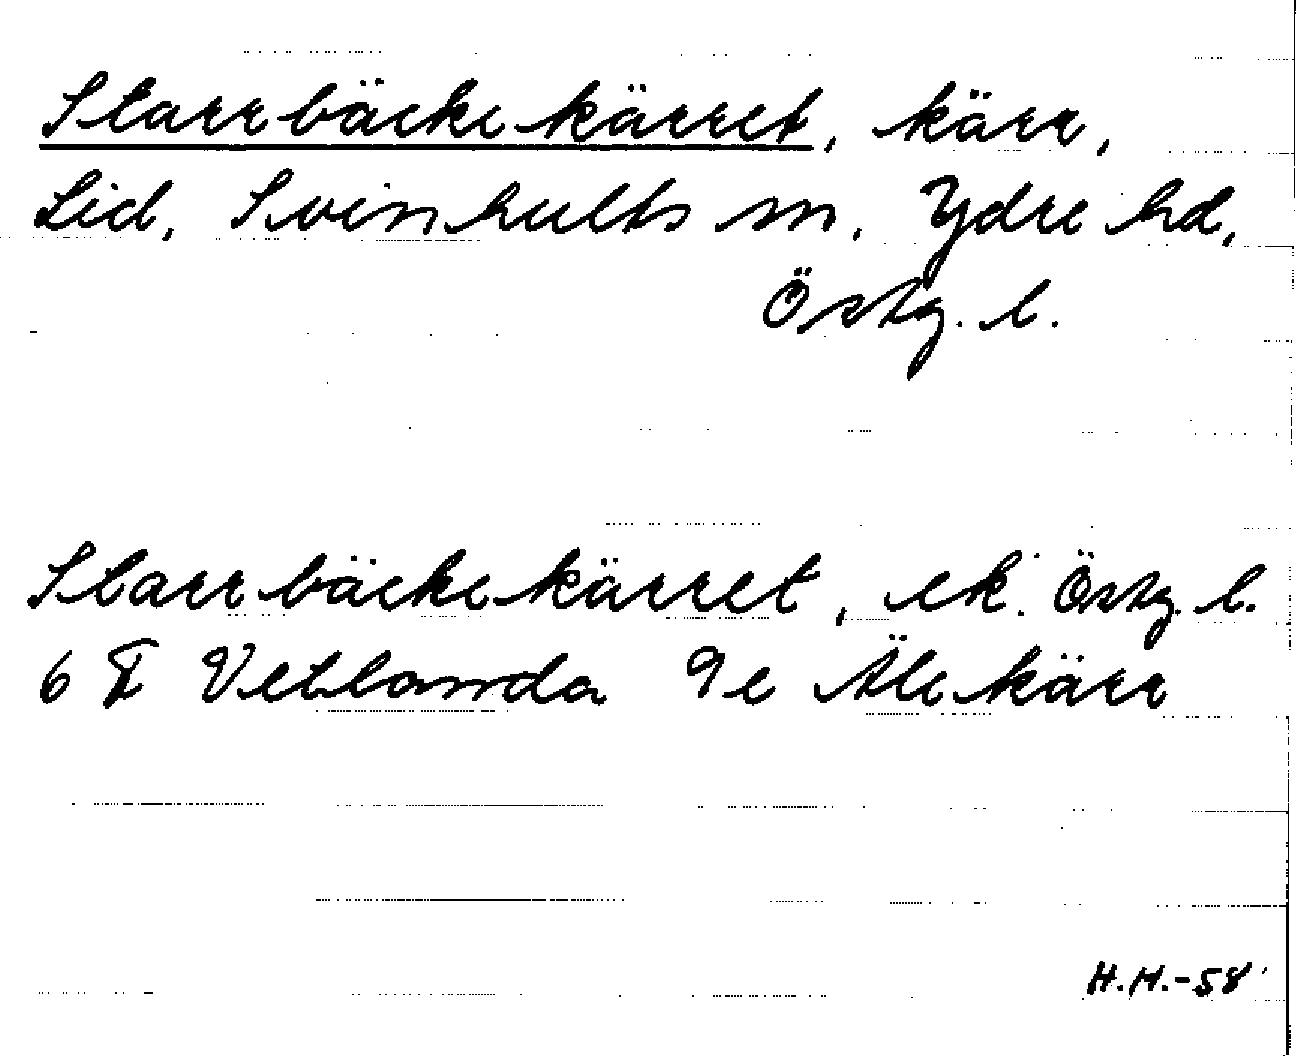 Starrbäckekärret, kärr,
Lid, Svinhults sn, Ydre hd,
Östg. l.
Starrbäckekärret, ek. Östg. l.
6 F Vetlanda 9e Älekärr
H.H.-58